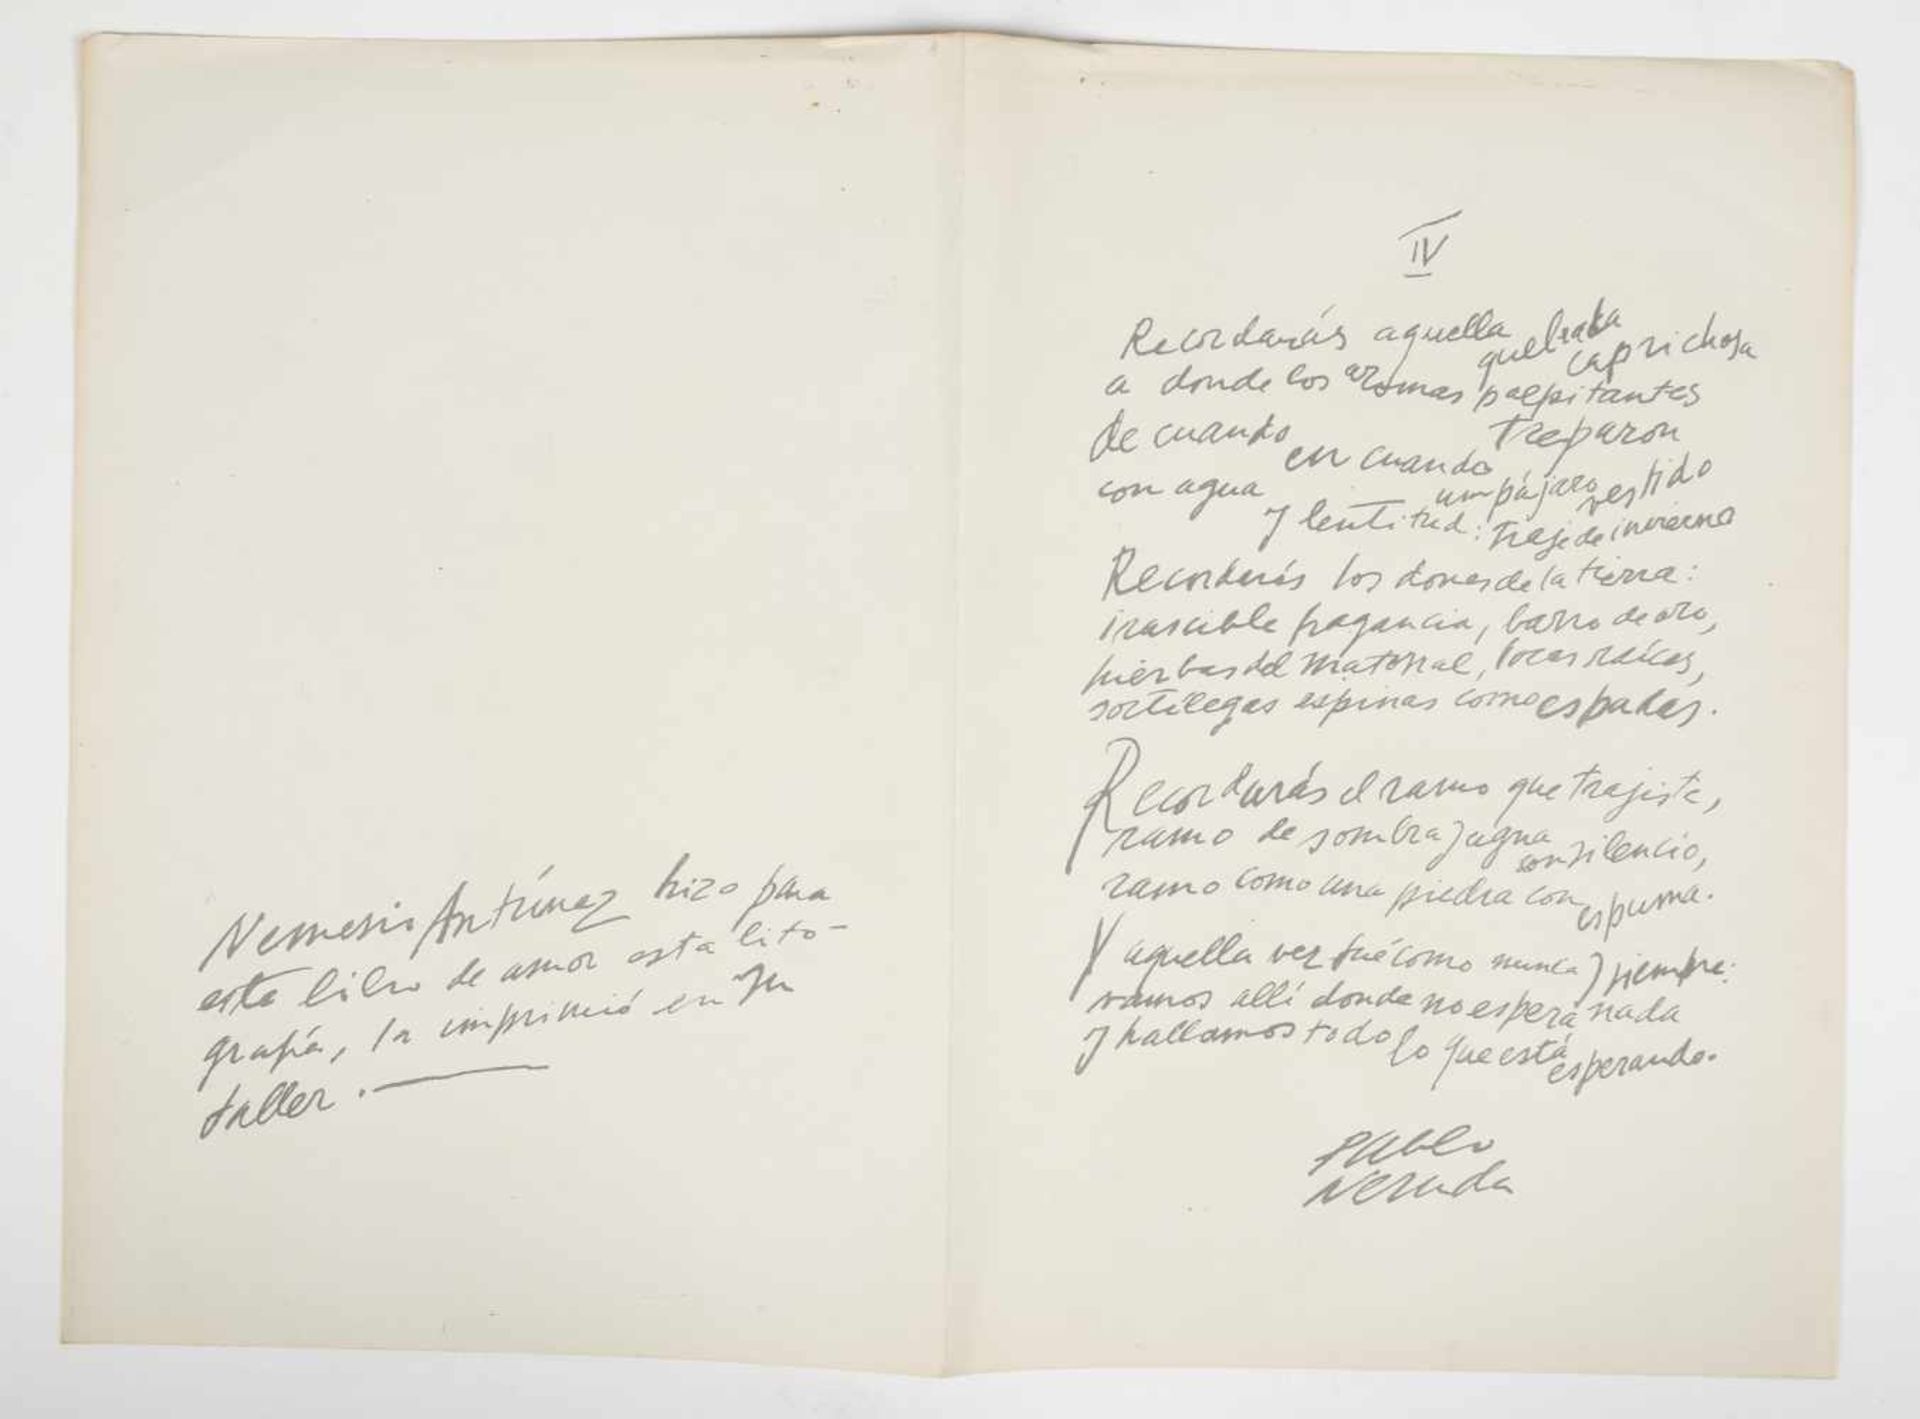 Nemesio Antúnez hizo para
este libro de amor esta lito-
grafía, la imprimió en su
taller.
IV
Recordarás aquella quebrada caprichosa
a donde los aromas palpitantes treparon
de cuando en cuando un pájaro vestido
con agua y lentitud: traje de invierno
Recordarás los dones de la tierra:
irascible fragancia, barro de oro,
hierbas del matorral, locas raíces,
sortílegas espinas como espadas.
Recordarás el ramo que trajiste,
ramo de sombra y agua con silencio,
ramo como una piedra con espuma.
Y aquella vez fué como nunca y siempre:
vamos allí donde no espera nada
y hallamos todo lo que está esperando.
Pablo
Neruda